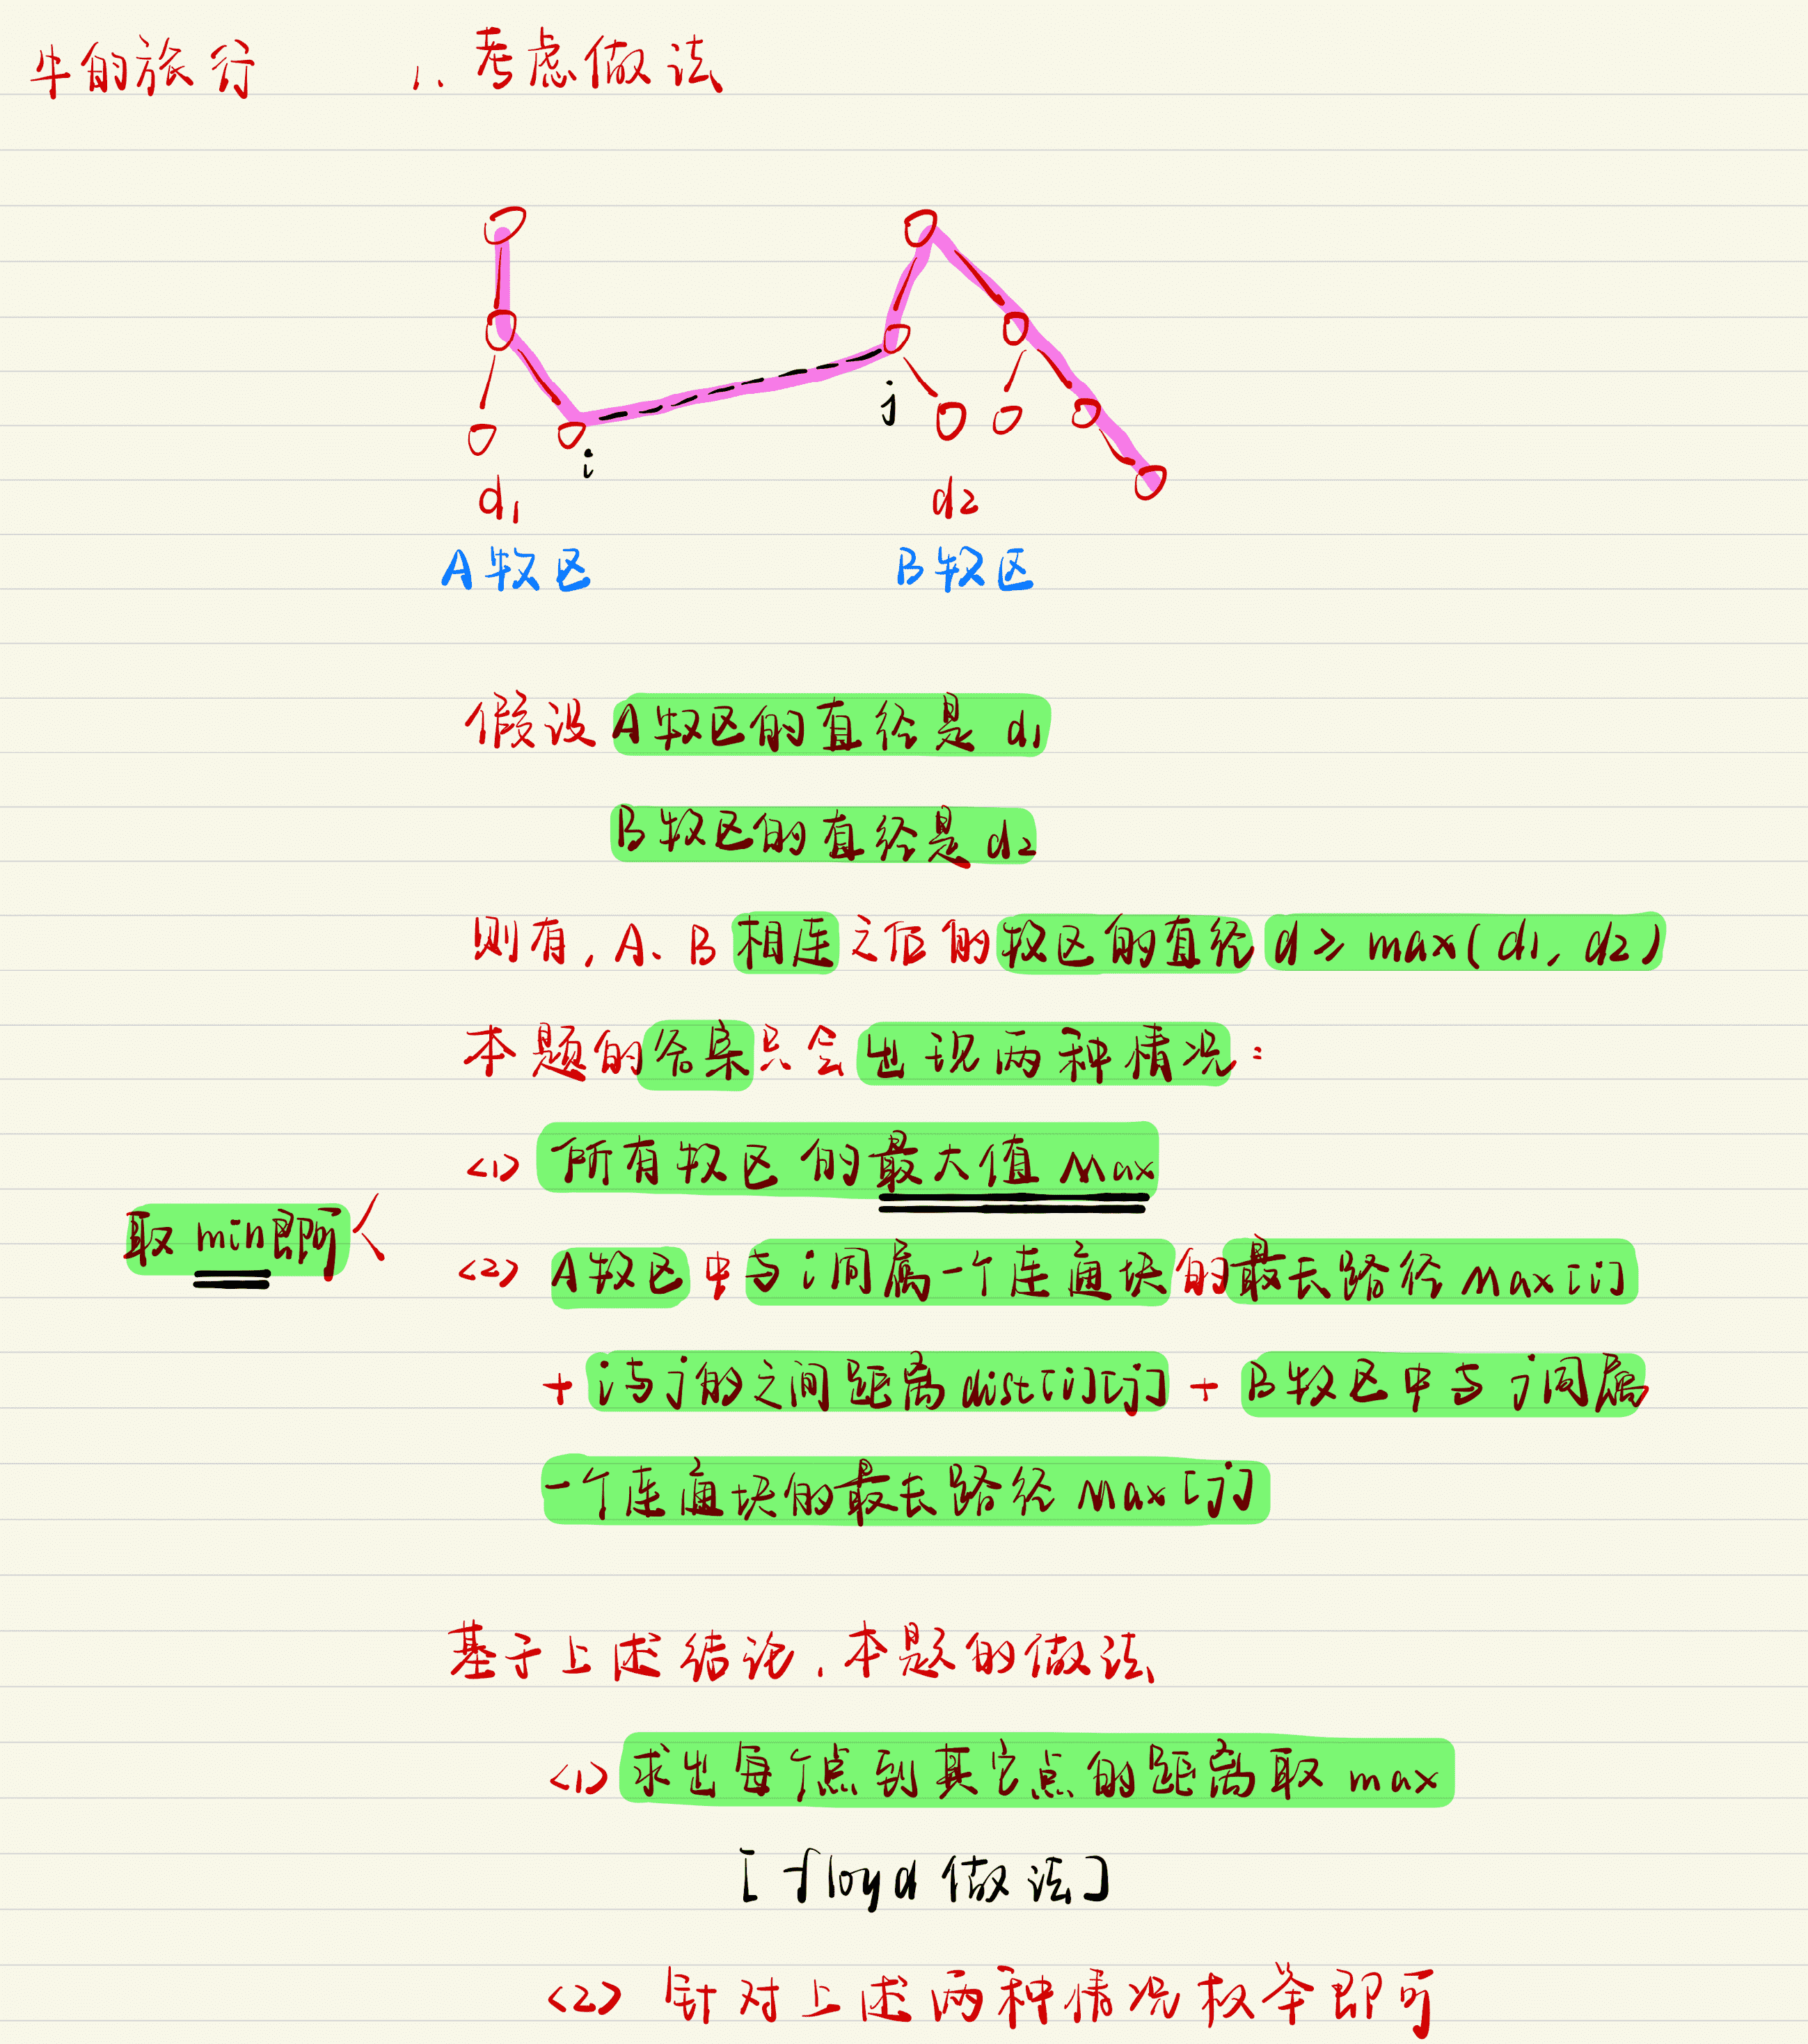 牛的旅行
1. 考虑做法
i
j
d1
d2
A牧区
B牧区
假设 A牧区的直径是 d1
B牧区的直径是 d2
则有, A、B 相连之后的牧区的直径 d ≥ max(d1, d2)
本题的答案只会出现两种情况:
<1> 所有牧区的最大值 Max
取 min即可
<2> A牧区中与i同属一个连通块的最长路径 Max[i]
+ i与j的之间距离 dist[i][j] + B牧区中与j同属
一个连通块的最长路径 Max[j]
基于上述结论, 本题的做法
<1> 求出每个点到其它点的距离取 max
[floyd 做法]
<2> 针对上述两种情况枚举即可